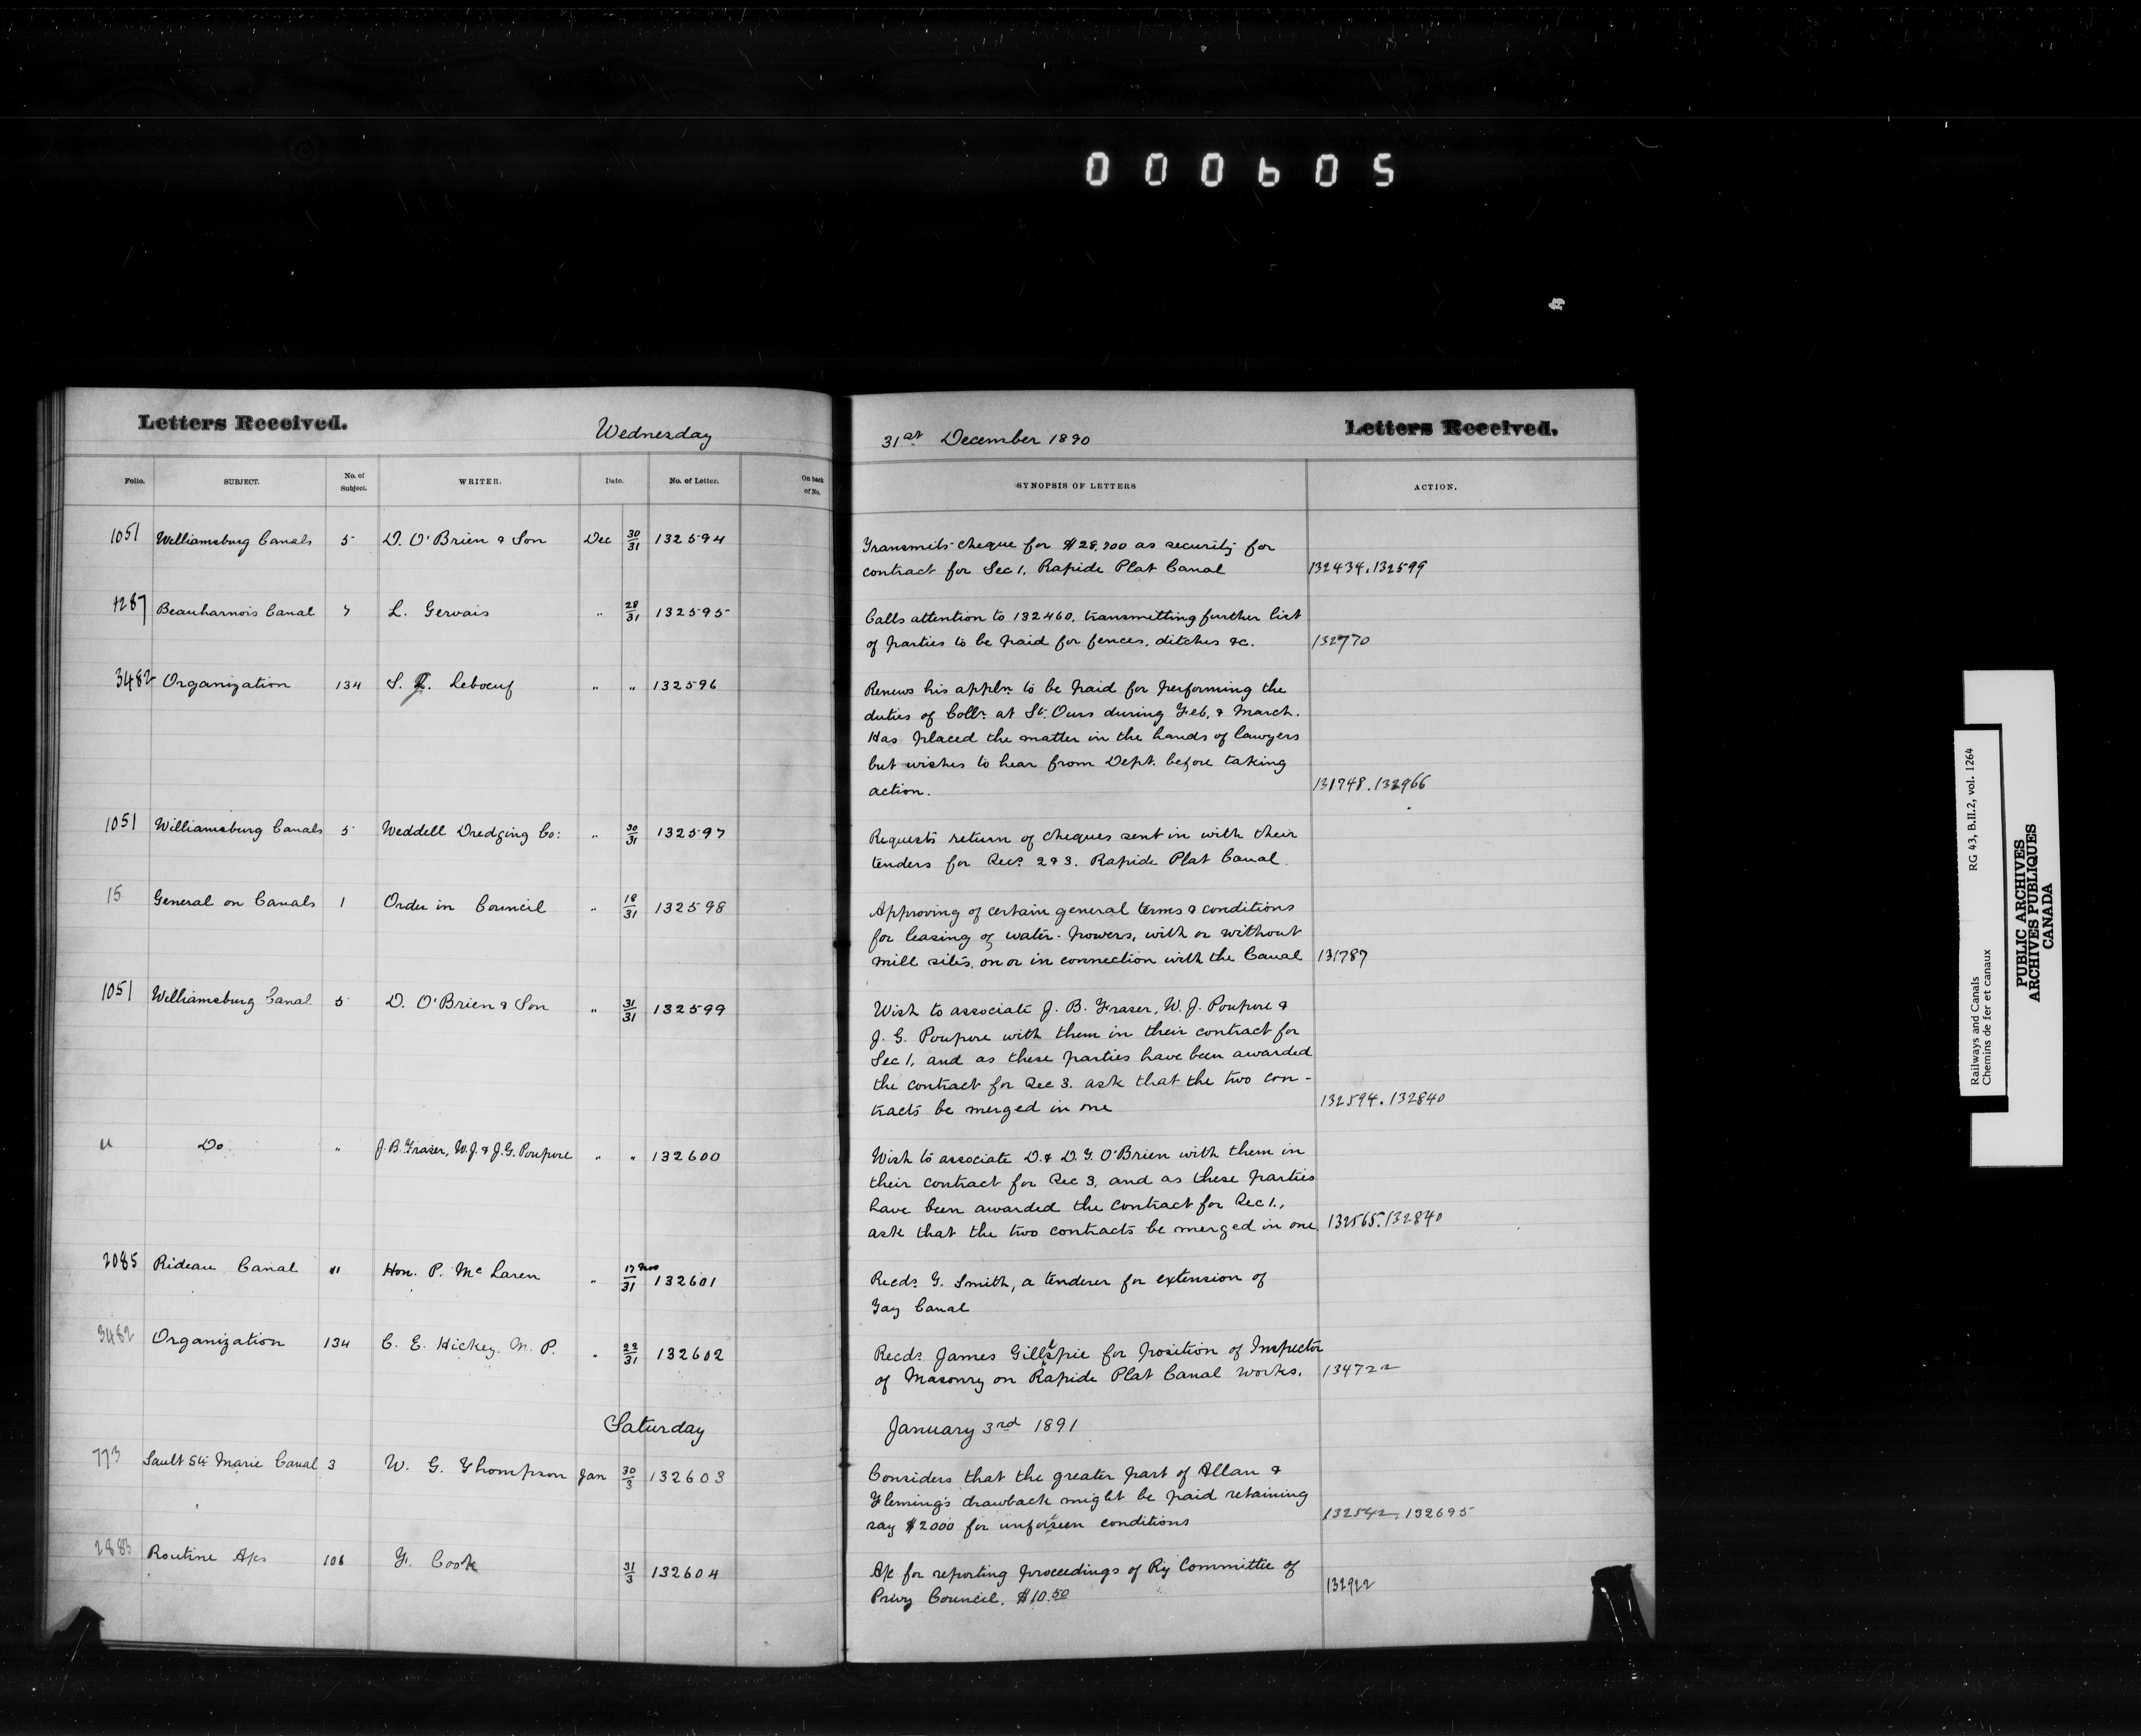 000605
Letters Received.
Wednesday
31st December 1890
Letters Received.
Folio. SUBJECT. No. of Subject. WRITER. Date. No. of Letter. On back of No. SYNOPSIS OF LETTERS ACTION.
1051 Williamsburg Canals 5 D. O'Brien & Son Dec 30/31 132594
Transmits cheque for $28,700 as security for
contract for Sec 1, Rapide Plat Canal 132434.132599
1287 Beauharnois Canal 7 L. Gervais " 28/31 132595
Calls attention to 132460, transmitting further list
of parties to be paid for fences, ditches &c. 132770
3482 Organization 134 S. Leboeuf " " 132596
Renews his appln to be paid for performing the
duties of Collr. at St. Ours during Feb. & March.
Has placed the matter in the hands of lawyers
but wishes to hear from Dept. before taking
action. 131748.132966
1051 Williamsburg Canals 5 Weddell Dredging Co: " 30/31 132597
Requests return of cheques sent in with their
tenders for Secs 2 & 3. Rapide Plat Canal.
15 General on Canals 1 Order in Council " 18/31 132598
Approving of certain general terms & conditions
for leasing of water-powers, with or without
mill sites, on or in connection with the Canal 131787
1051 Williamsburg Canal 5 D. O'Brien & Son " 31/31 132599
Wish to associate J. B. Fraser, W. J. Poupore &
J. G. Poupore with them in their contract for
Sec 1, and as these parties have been awarded
the contract for Sec 3. ask that the two con-
tracts be merged in one 132594.132840
" Do. " J. B. Fraser, W. J. & J. G. Poupore " " 132600
Wish to associate D. & D. G. O'Brien with them in
their contract for Sec 3, and as these parties
have been awarded the contract for Sec 1.,
ask that the two contracts be merged in one. 132565.132840
2085 Rideau Canal 11 Hon. P. McLaren " 17 Nov/31 132601
Recds. G. Smith, a tenderer for extension of
Tay Canal
3482 Organization 134 C. E. Hickey. M. P. " 22/31 132602
Recds. James Gillespie for position of Inspector
of Masonry on Rapide Plat Canal works. 134722
Saturday
January 3rd 1891
773 Sault Ste Marie Canal 3 W. G. Thompson Jan 30/3 132603
Considers that the greater part of Allan &
Fleming's drawback might be paid retaining
say $2000 for unforseen conditions 132542, 132695
2883 Routine A/cs 106 F. Cook 31/3 132604
A/c for reporting proceedings of Ry Committee of
Privy Council. $10.50 132922
Railways and Canals RG 43, B.II.2, vol. 1264
Chemins de fer et canaux
PUBLIC ARCHIVES
ARCHIVES PUBLIQUES
CANADA